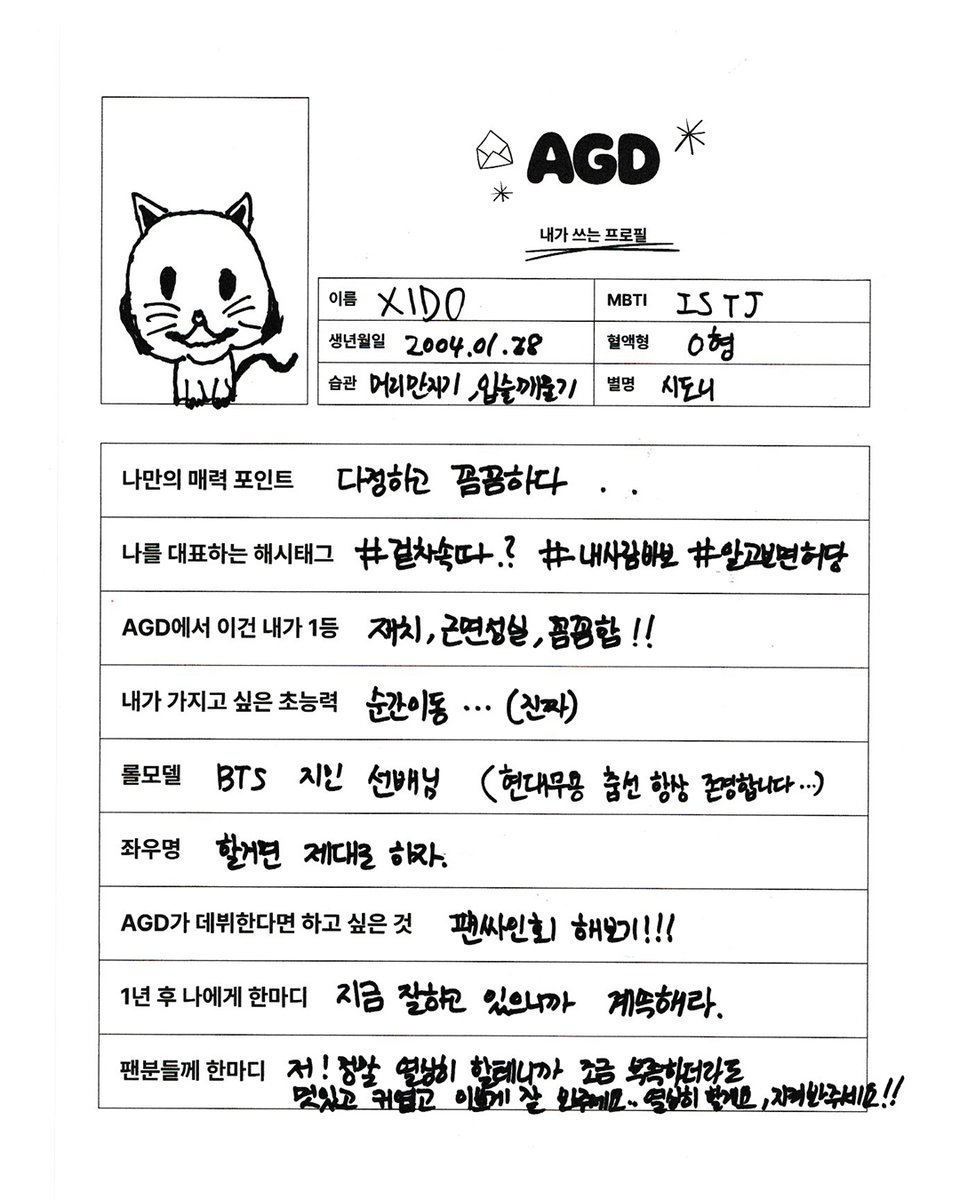 AGD
내가 쓰는 프로필
이름 XIDO MBTI ISTJ
생년월일 2004.01.28 혈액형 O형
습관 머리만지기, 입술깨물기 별명 시도니
나만의 매력 포인트 다정하고 꼼꼼하다 . .
나를 대표하는 해시태그 #겉차속따.? #내사람바보 #알고보면허당
AGD에서 이건 내가 1등 재치, 근면성실, 꼼꼼함!!
내가 가지고 싶은 초능력 순간이동 ... (진짜)
롤모델 BTS 지민 선배님 (현대무용 춤선 항상 존경합니다...)
좌우명 할거면 제대로 하자.
AGD가 데뷔한다면 하고 싶은 것 팬싸인회 해보기!!!
1년 후 나에게 한마디 지금 잘하고 있으니까 계속해라.
팬분들께 한마디 저! 정말 열심히 할테니까 조금 부족하더라도
멋있고 귀엽고 이쁘게 잘 봐주세요.. 열심히 할게요, 지켜봐주세요!!